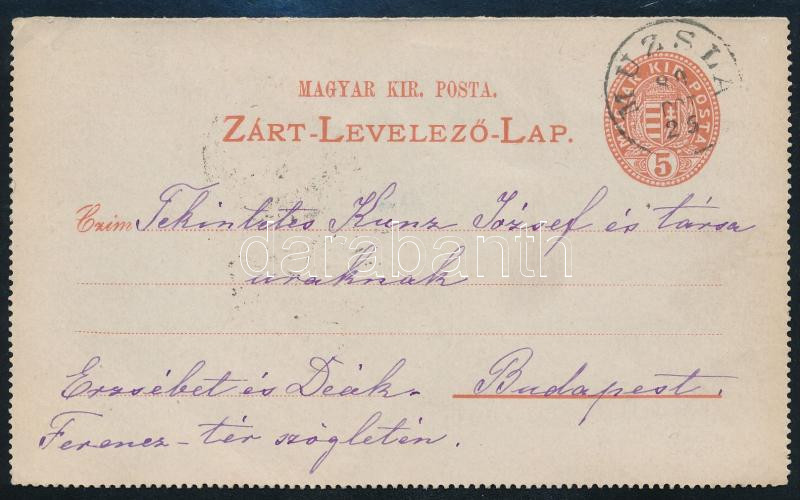 MAGYAR KIR. POSTA.
ZÁRT-LEVELEZŐ-LAP.
MUZSLA
25
MAGY. KIR. POSTA
5
Czim Tekintetes Kunz József és társa
uraknak
darabanth
Erzsébet és Deák- Budapest.
Ferencz-tér szögletén.